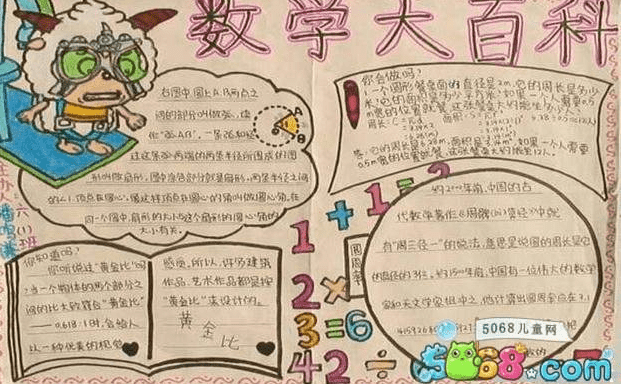 数学大百科
右图中,圆上A、B两点之
间的部分叫做弧,读
作"弧AB",一条弧和经
过这条弧两端的两条半径所围成的图
形叫做扇形,图中涂色部分就是扇形,两条半径之间
的∠1,顶点在圆心,像这样顶点在圆心的角叫做圆心角。在
同一个圆中,扇形的大小与这个扇形的圆心角的
大小有关。
A
B
你会做吗?
一个圆形餐桌面的直径是2m,它的周长是多少
米?它的面积是多少平方米?如果一个人需要0.5
m宽的位置就餐,这张餐桌大约能坐多少人?
答:它的周长是6.28m,面积是3.14m²如果一个人需要
0.5m宽的位置就餐,这张餐桌大约能坐12人。
六(1)班
你知道吗?
你听说过"黄金比"吗
?当一个物体的两个部分之
间的比大致符合"黄金比"
——0.618:1时,会给人
以一种优美的视觉
感觉。所以,许多建筑
作品、艺术作品都是按
"黄金比"来设计的。
黄金比
1+1=2
2×
3=6
42÷
圆周率
约2000年前,中国的古
代数学著作《周髀算经》中就
有"周三径一"的说法,意思是说圆的周长是它
的直径的3倍。约1500年前,中国有一位伟大的数学
家和天文学家祖冲之。他计算出圆周率应在3.1
415926
5068儿童网
5068.com